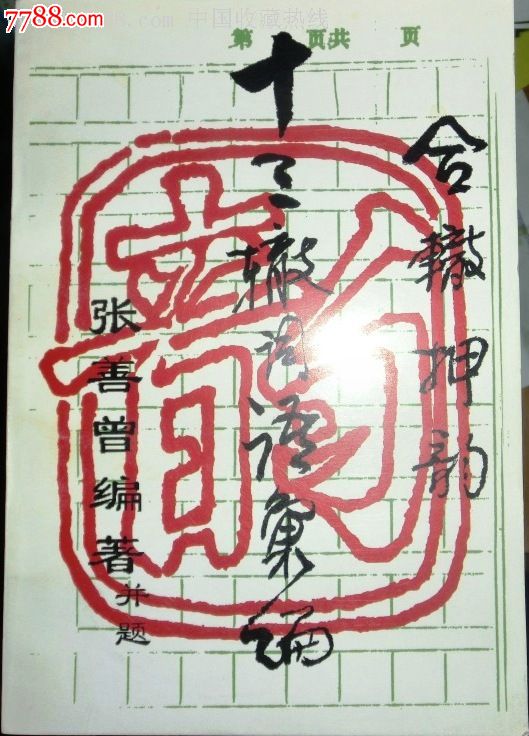 7788.com 中国收藏热线
7788.com
第 页共 页
合辙押韵
十三辙词语汇编
张善曾编著并题